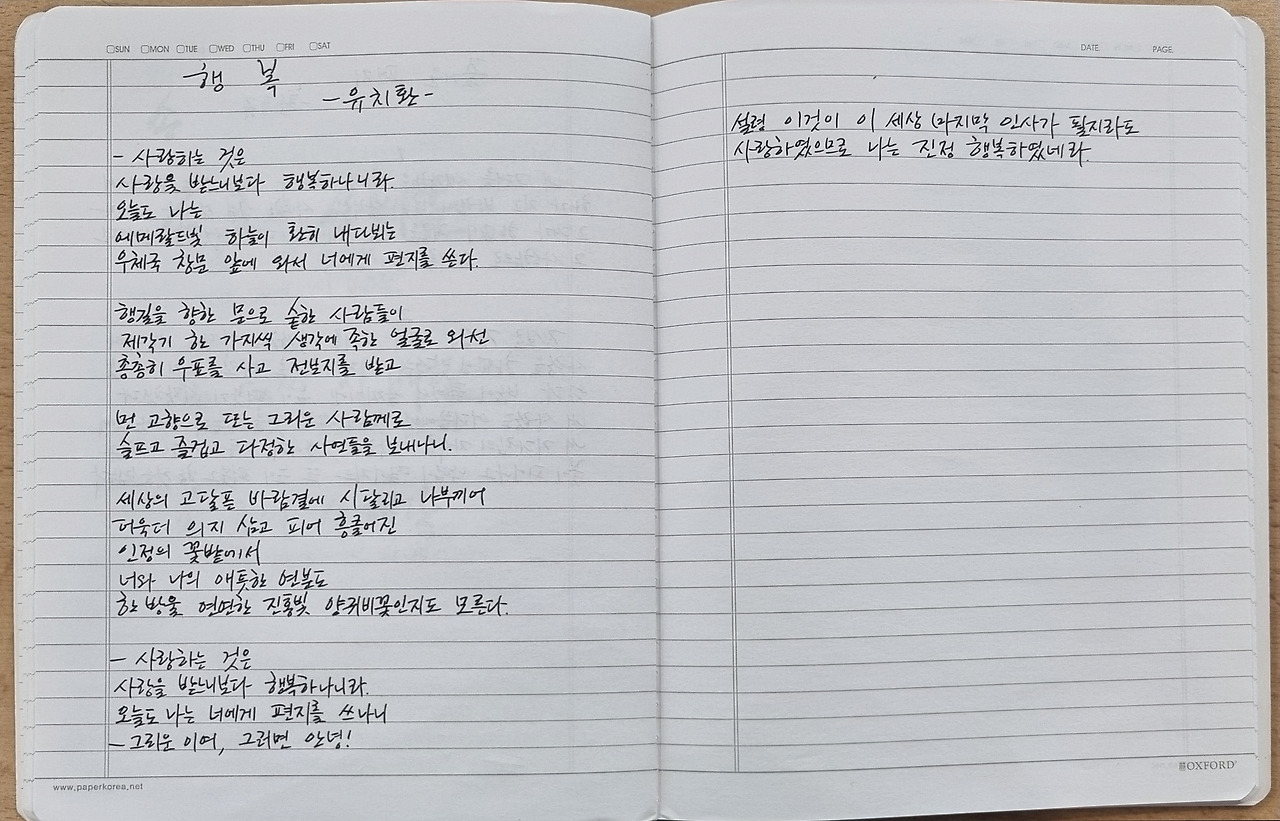 SUN MON TUE WED THU FRI SAT
행 복
-유치환-
- 사랑하는 것은
사랑을 받느니보다 행복하나니라.
오늘도 나는
에메랄드빛 하늘이 환히 내다뵈는
우체국 창문 앞에 와서 너에게 편지를 쓴다.
행길을 향한 문으로 숱한 사람들이
제각기 한 가지씩 생각에 족한 얼굴로 와선
총총히 우표를 사고 전보지를 받고
먼 고향으로 또는 그리운 사람께로
슬프고 즐겁고 다정한 사연들을 보내나니.
세상의 고달픈 바람결에 시달리고 나부끼어
더욱더 의지 삼고 피어 흥클어진
인정의 꽃밭에서
너와 나의 애틋한 연분도
한 방울 연연한 진홍빛 양귀비꽃인지도 모른다.
- 사랑하는 것은
사랑을 받느니보다 행복하나니라.
오늘도 나는 너에게 편지를 쓰나니
- 그리운 이여, 그러면 안녕!
www.paperkorea.net
DATE. PAGE.
설령 이것이 이 세상 마지막 인사가 될지라도
사랑하였으므로 나는 진정 행복하였네라.
OXFORD